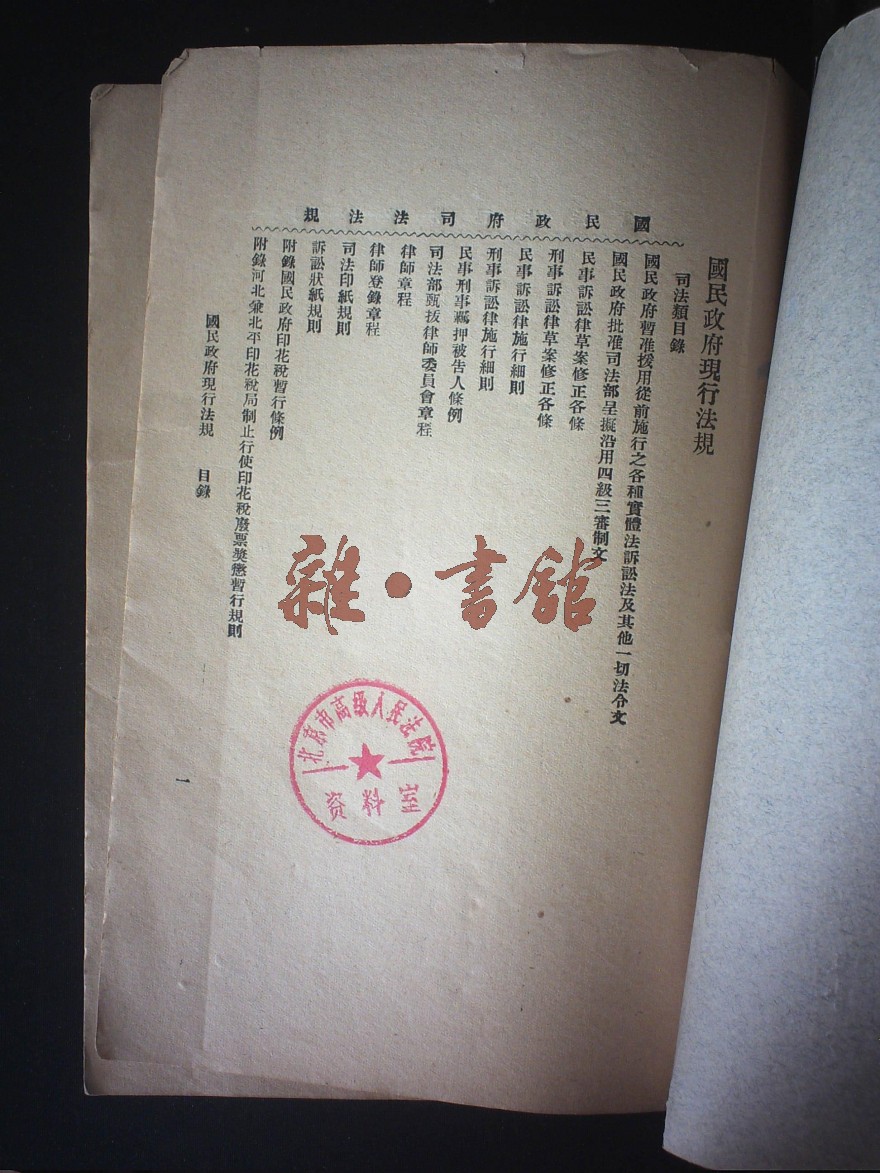 國民政府司法法規
國民政府現行法規
司法類目錄
國民政府暫准援用從前施行之各種實體法訴訟法及其他一切法令文
國民政府批准司法部呈擬沿用四級三審制文
民事訴訟律草案修正各條
刑事訴訟律草案修正各條
民事訴訟律施行細則
刑事訴訟律施行細則
民事刑事羈押被告人條例
司法部甄拔律師委員會章程
律師章程
律師登錄章程
司法印紙規則
訴訟狀紙規則
附錄國民政府印花稅暫行條例
附錄河北兼北平印花稅局制止行使印花稅廢票獎懲暫行規則
國民政府現行法規 目錄
一
雜·書館
北京市高级人民法院
资料室